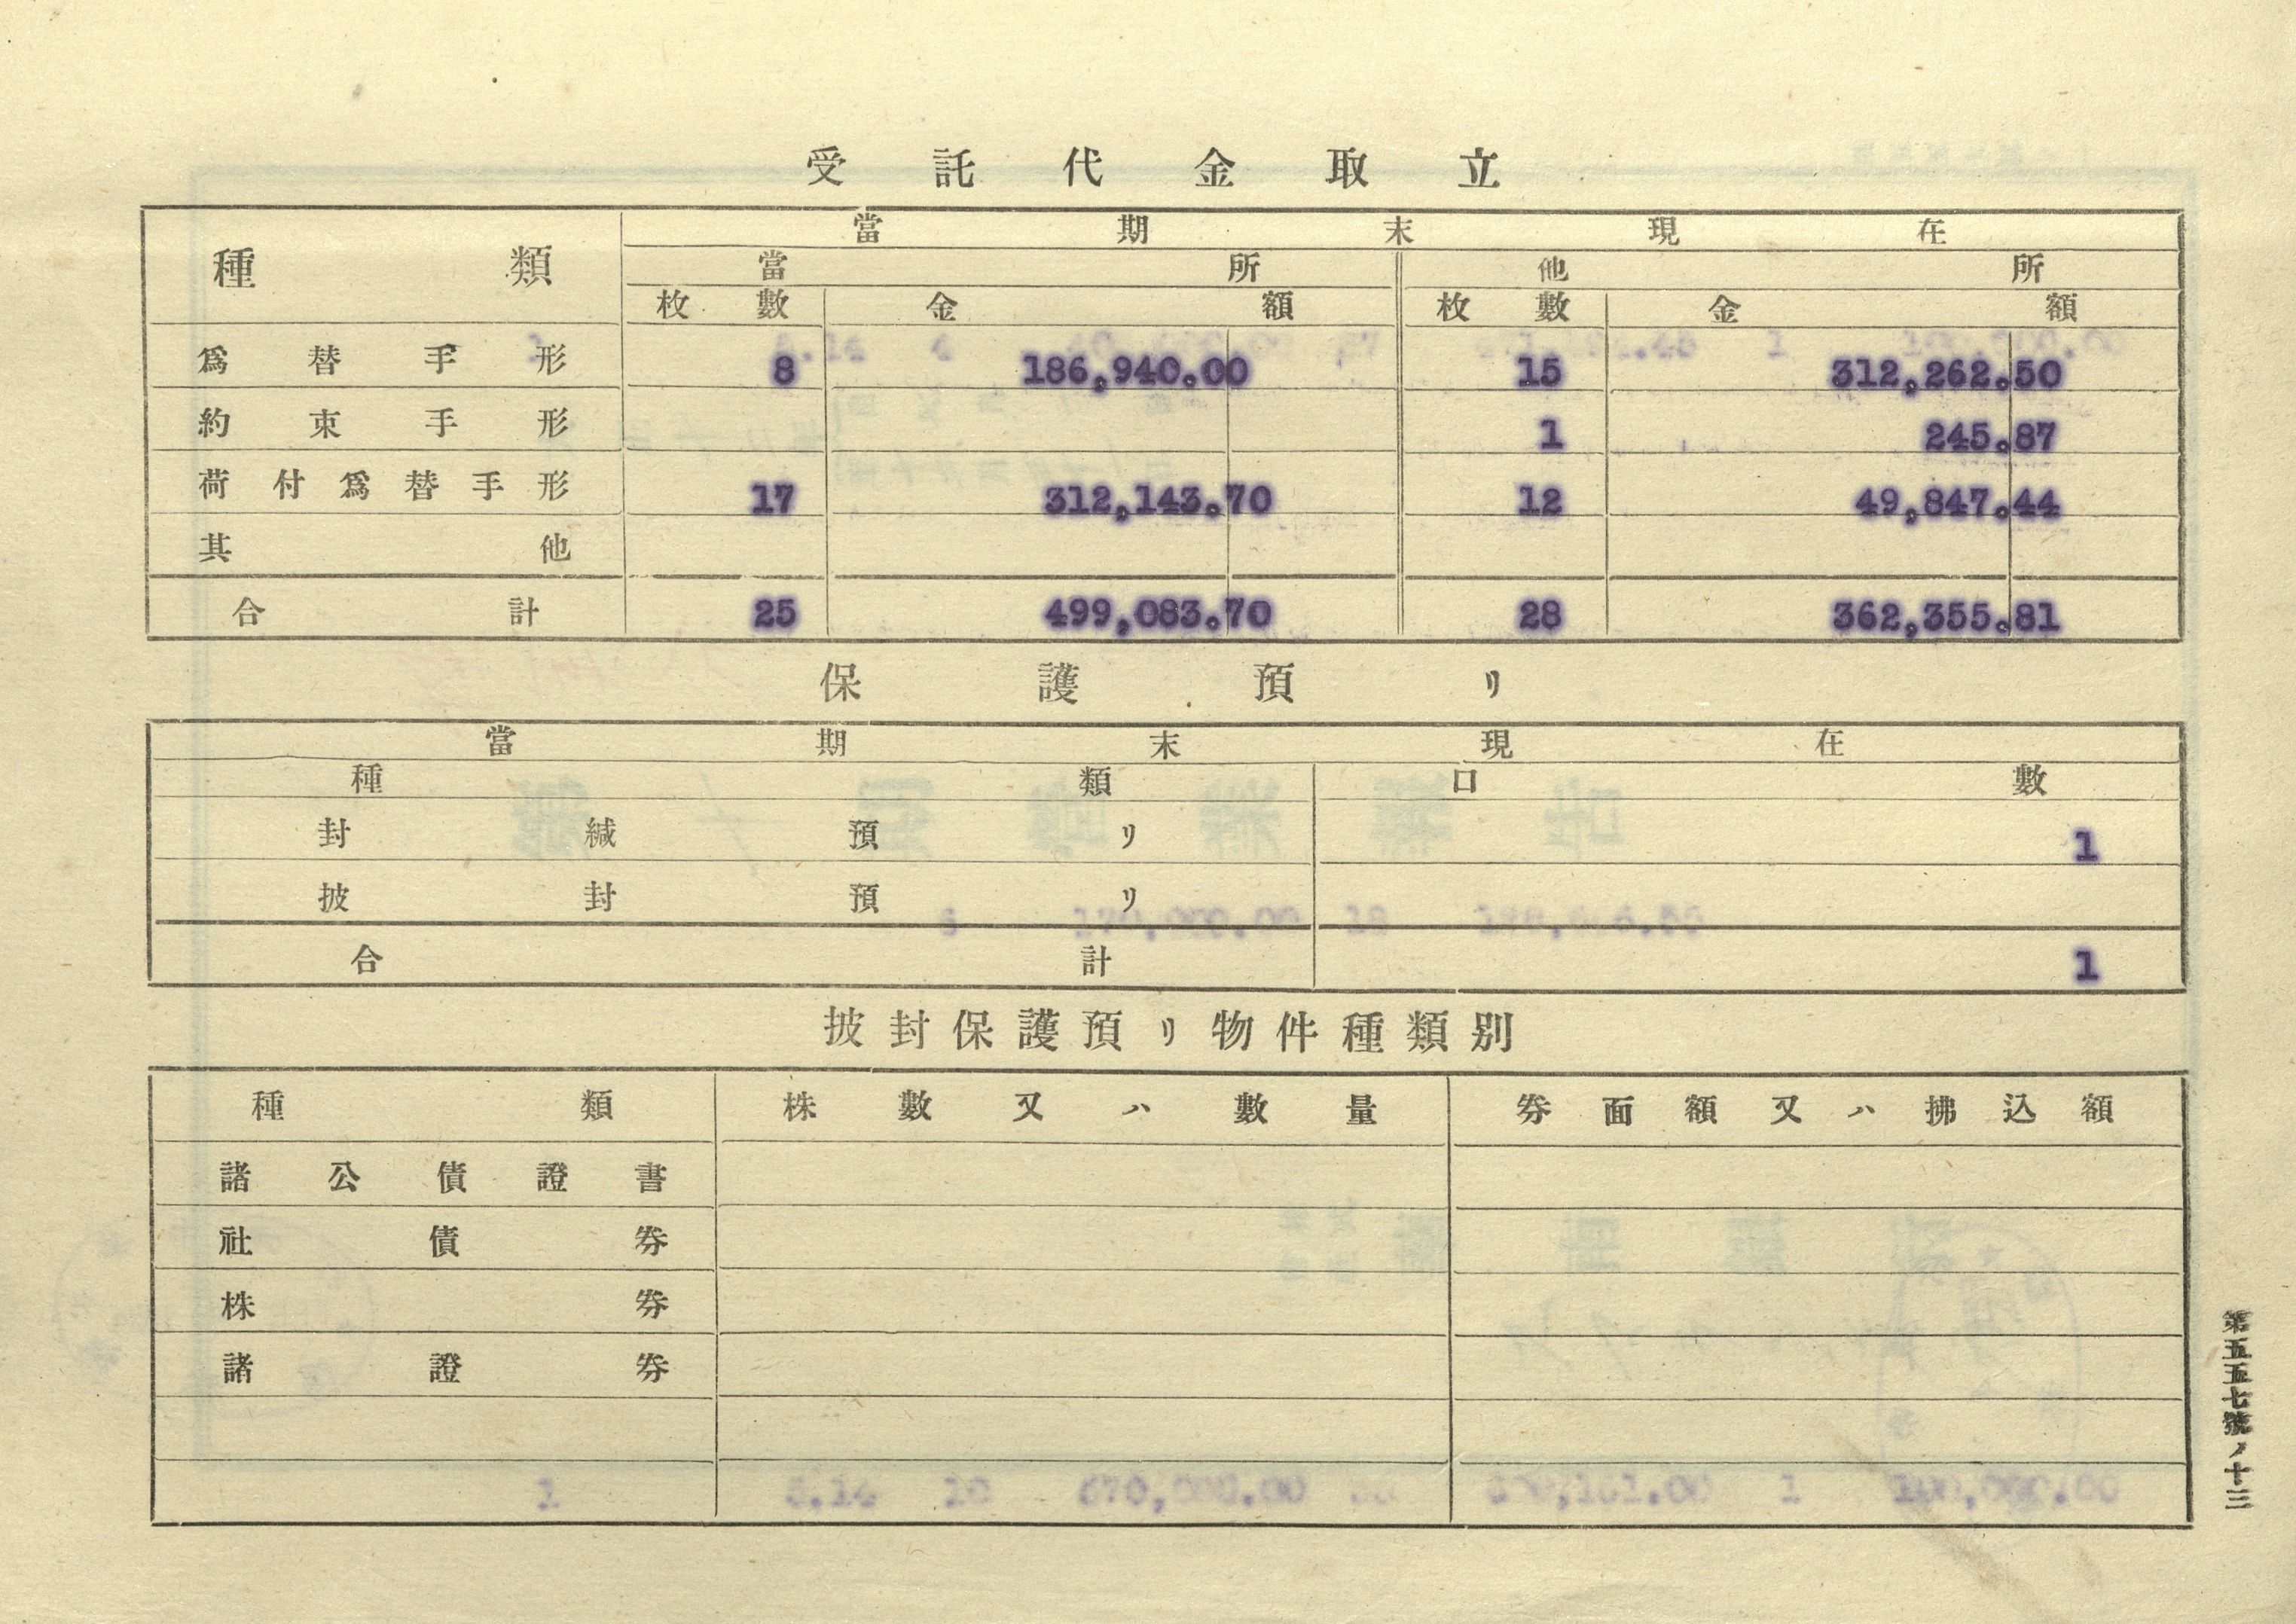 受託代金取立
種類 當期末現在
當所 他所
枚數 金額 枚數 金額
爲替手形 8 186,940.00 15 312,262.50
約束手形 1 245.87
荷付爲替手形 17 312,143.70 12 49,847.44
其他
合計 25 499,083.70 28 362,355.81
保護預リ
當期末現在
種類 口數
封緘預リ 1
披封預リ
合計 1
披封保護預リ物件種類別
種類 株數又ハ數量 券面額又ハ拂込額
諸公債證書
社債券
株券
諸證券
第五五七號ノ十三